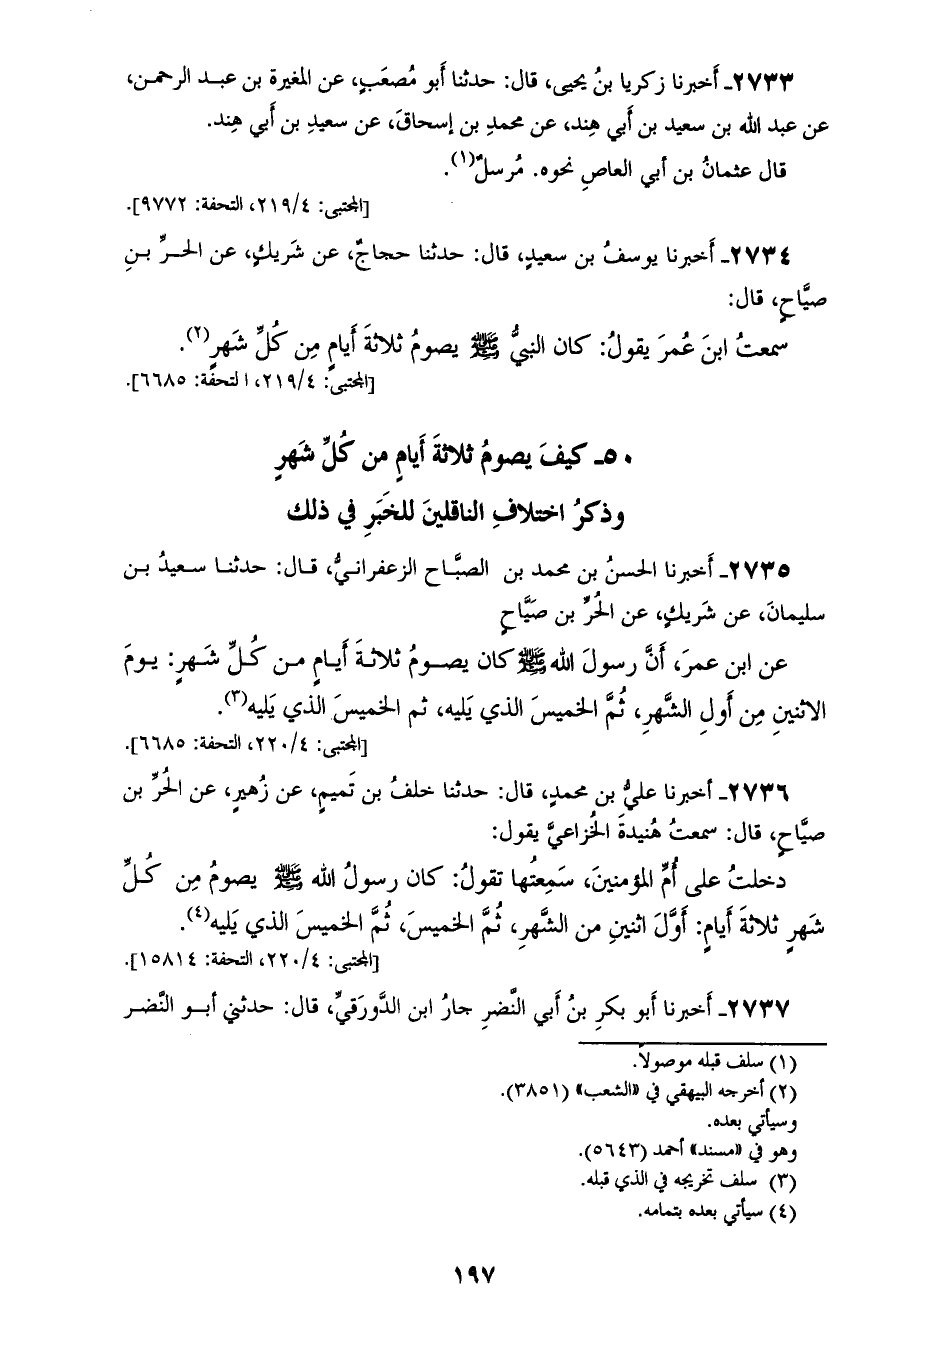 ٢٧٣٣ـ أخبرنا زكريا بنُ يحيى، قال: حدثنا أَبو مُصعَبٍ، عن المغيرة بن عبـد الرحمـن،
عن عبد الله بن سعيد بن أَبي هِند، عن محمدِ بن إسحاقَ، عن سعيدِ بن أَبي هِند.
قال عثمانُ بن أبي العاصِ نحوه. مُرسلٌ(١).
[المجتبى: ٢١٩/٤، التحفة: ٩٧٧٢].
٢٧٣٤ـ أَخبرنا يوسفُ بن سعيدٍ، قال: حدثنا حجاجٌ، عن شَريكٍ، عن الحـرِّ بـنِ
صيَّاحٍ، قال:
سمعتُ ابنَ عُمرَ يقولُ: كان النبيُّ ﷺ يصومُ ثلاثةَ أَيامٍ مِن كُلِّ شَهرٍ(٢).
[المجتبى: ٢١٩/٤، التحفة: ٦٦٨٥].
٥٠ـ كيفَ يصومُ ثلاثةَ أَيامٍ من كُلِّ شَهرٍ
وذكرُ اختلافِ الناقلينَ للخَبَرِ في ذلك
٢٧٣٥ـ أَخبرنا الحسنُ بن محمد بن الصبَّـاح الزعفرانـيُّ، قـال: حدثنـا سـعيدُ بـن
سليمانَ، عن شَريكٍ، عن الحُرِّ بن صَيَّاحٍ
عن ابن عمرَ، أَنَّ رسولَ الله ﷺ كان يصـومُ ثلاثـةَ أَيـامٍ مـن كُـلِّ شـَهرٍ: يـومَ
الاثنينِ مِن أَولِ الشَّهرِ، ثُمَّ الخميسَ الذي يَليه، ثم الخميسَ الذي يَليه(٣).
[المجتبى: ٢٢٠/٤، التحفة: ٦٦٨٥].
٢٧٣٦ـ أخبرنا عليُّ بن محمدٍ، قال: حدثنا خلفُ بن تَميمٍ، عن زُهيرٍ، عن الحُرِّ بن
صيَّاحٍ، قال: سمعتُ هُنيدةَ الخُزاعيَّ يقول:
دخلتُ على أُمِّ المؤمنينَ، سَمِعتُها تقولُ: كان رسولُ الله ﷺ يصومُ مِن كُـلِّ
شَهرٍ ثلاثةَ أَيامٍ: أَوَّلَ اثنينِ من الشَّهرِ، ثُمَّ الخميسَ، ثُمَّ الخميسَ الذي يَليه(٤).
[المجتبى: ٢٢٠/٤، التحفة: ١٥٨١٤].
٢٧٣٧ـ أَخبرنا أَبو بكرِ بنُ أَبي النَّضرِ جارُ ابن الدَّورَقيِّ، قال: حدثني أبـو النَّضر
(١) سلف قبله موصولاً.
(٢) أخرجه البيهقي في «الشعب» (٣٨٥١).
وسيأتي بعده.
وهو في «مسند» أحمد (٥٦٤٣).
(٣) سلف تخريجه في الذي قبله.
(٤) سيأتي بعده بتمامه.
١٩٧